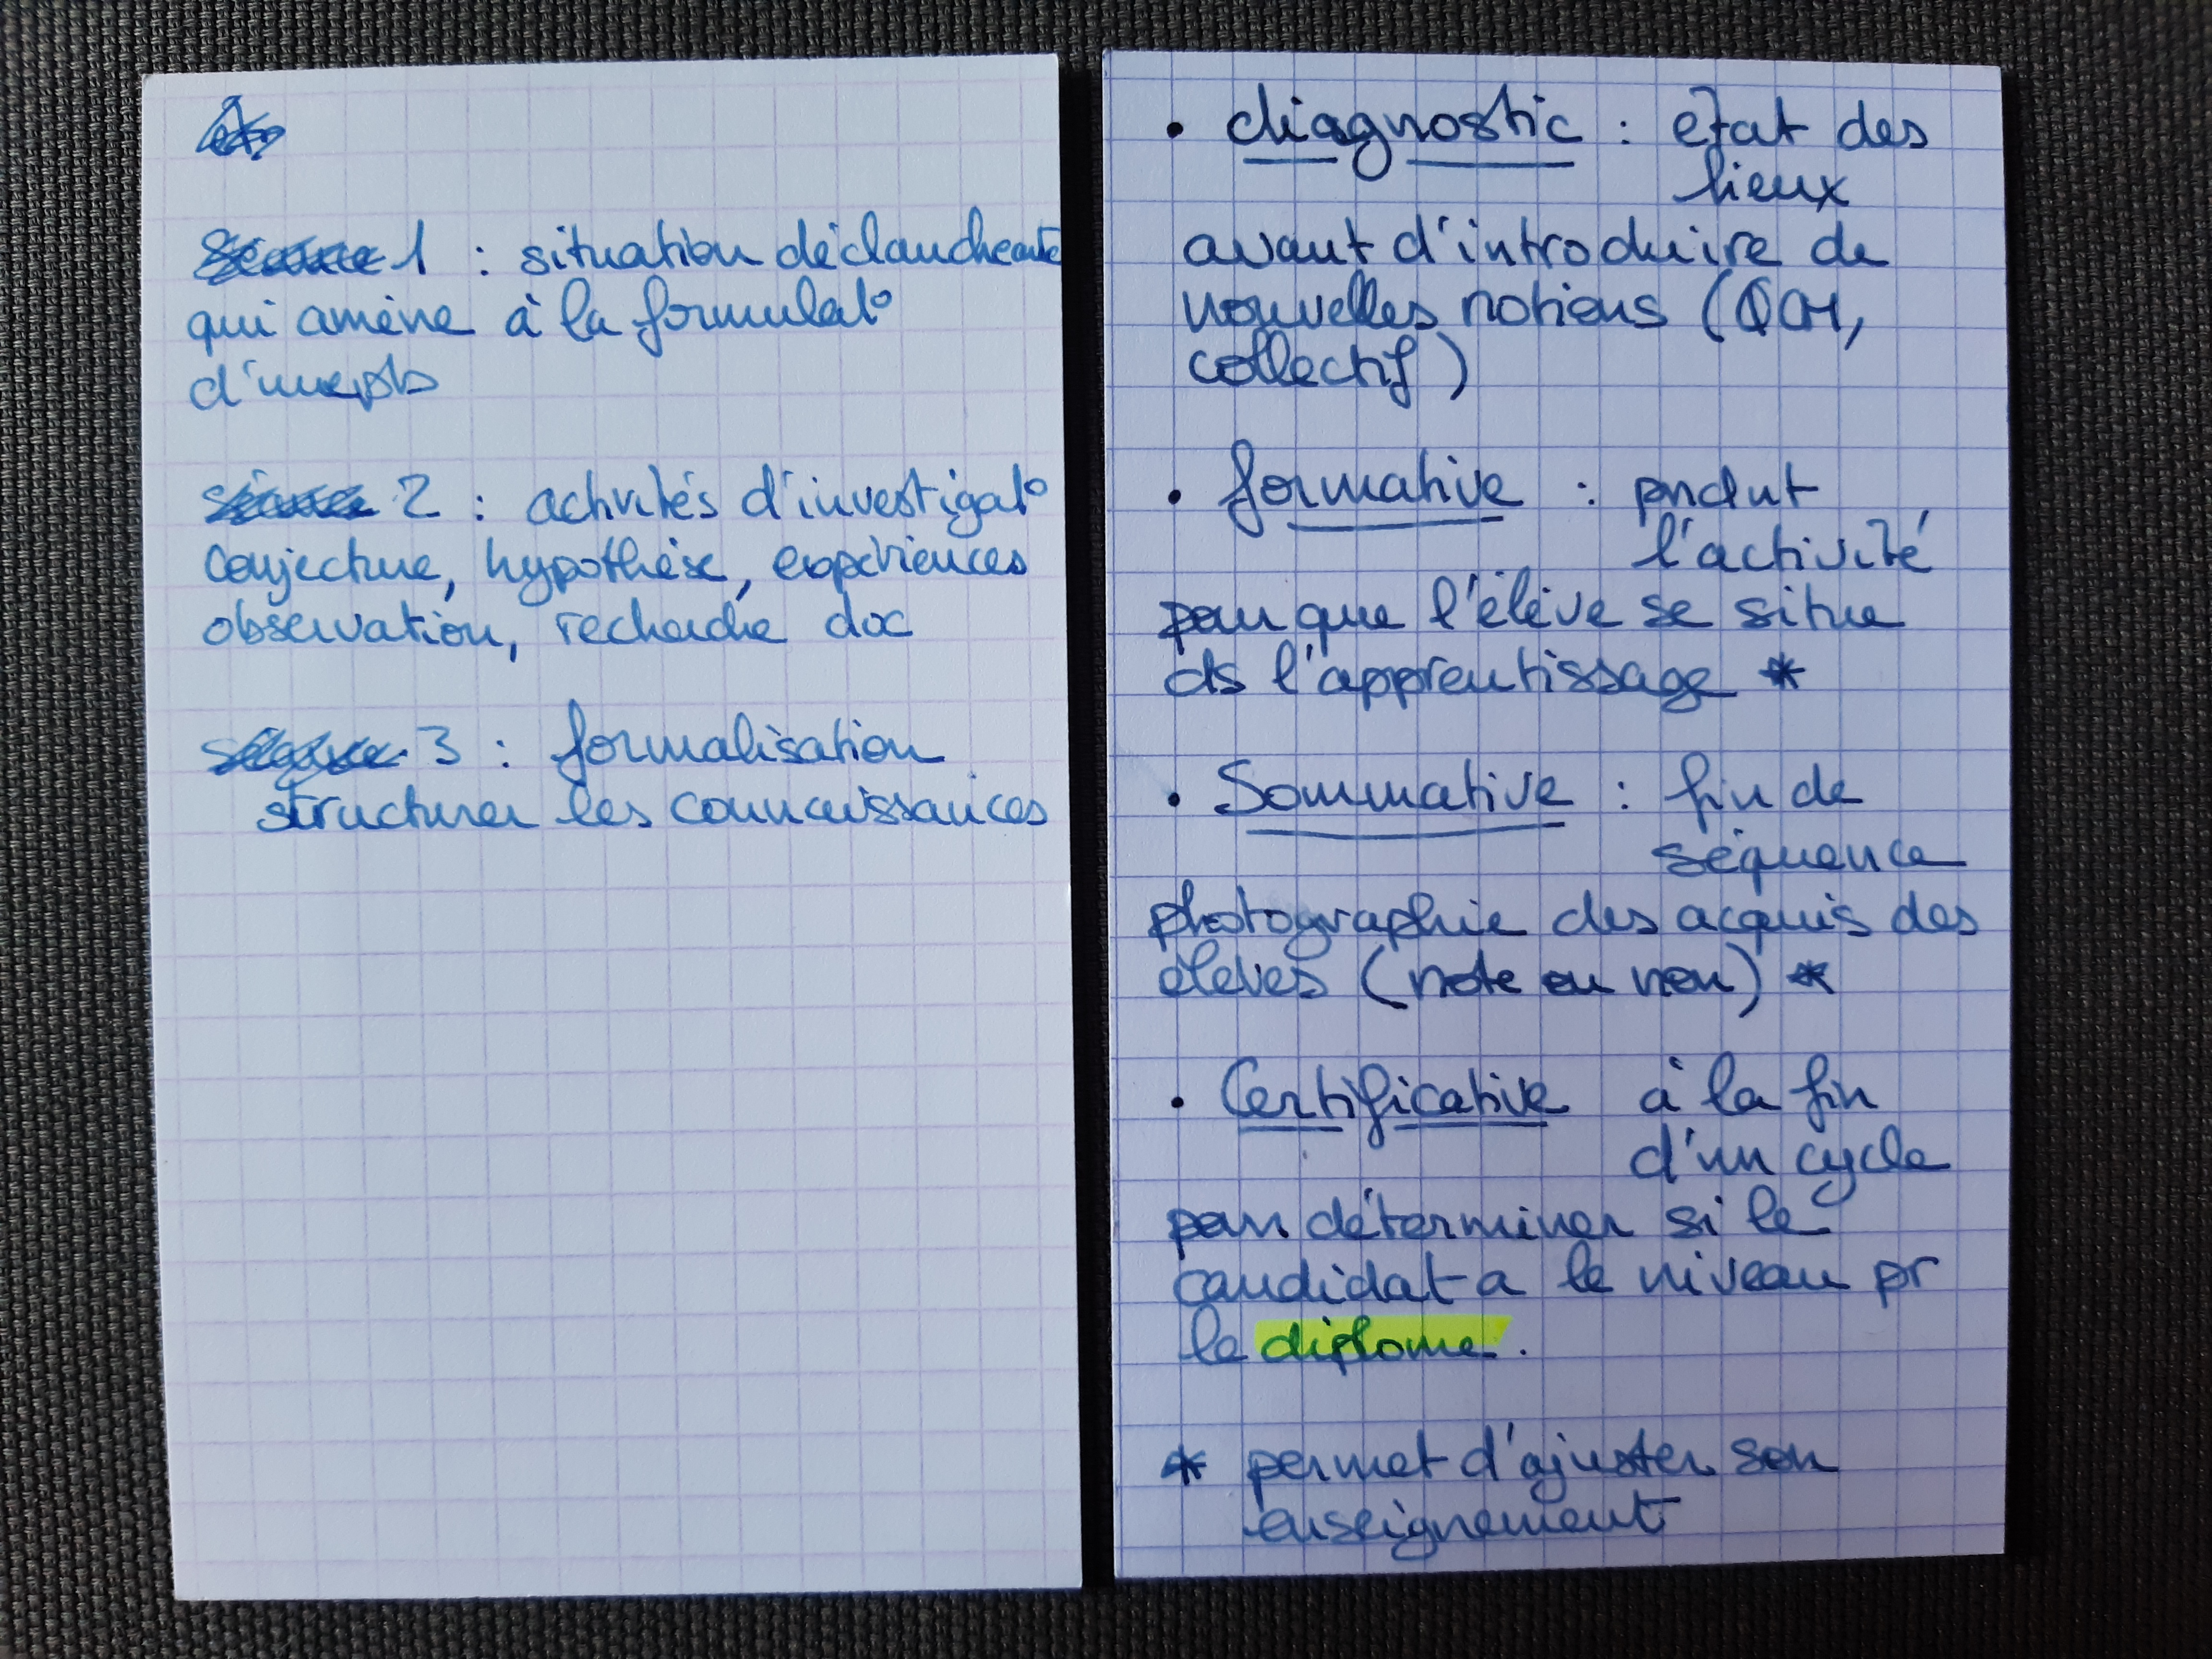 1 : situation déclancheante
qui amène à la formulat°
d'
2 : activités d'investigat°
conjecture, hypothèse, expériences
observation, recherche doc
3 : formalisation
structurer les connaissances
• diagnostic : etat des
lieux
avant d'introduire de
nouvelles notions (QCM,
collectif)
• formative : pndnt
l'activité
pour que l'élève se situe
ds l'apprentissage *
• Sommative : fin de
séquence
photographie des acquis des
élèves (note ou non) *
• Certificative à la fin
d'un cycle
pour déterminer si le
candidat a le niveau pr
le diplome.
* permet d'ajuster son
enseignement